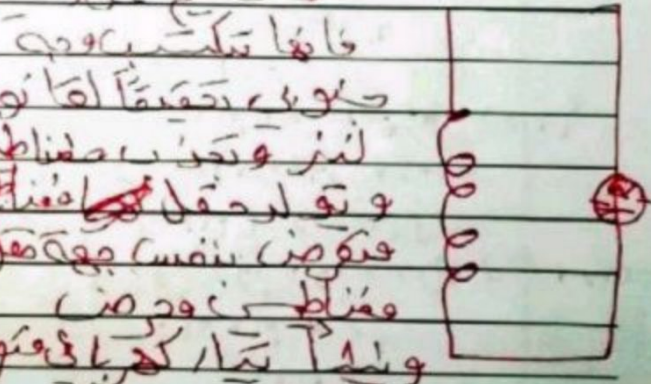 فانها تكتسب وجه
جنوبي تحقيقاً لقانو
لنز و تجذب مغناط
و تولد حقل مغنا
متحرض بنفس جهة حقل
مغناطيسي محرض
وينشأ تيار كهربائي متو